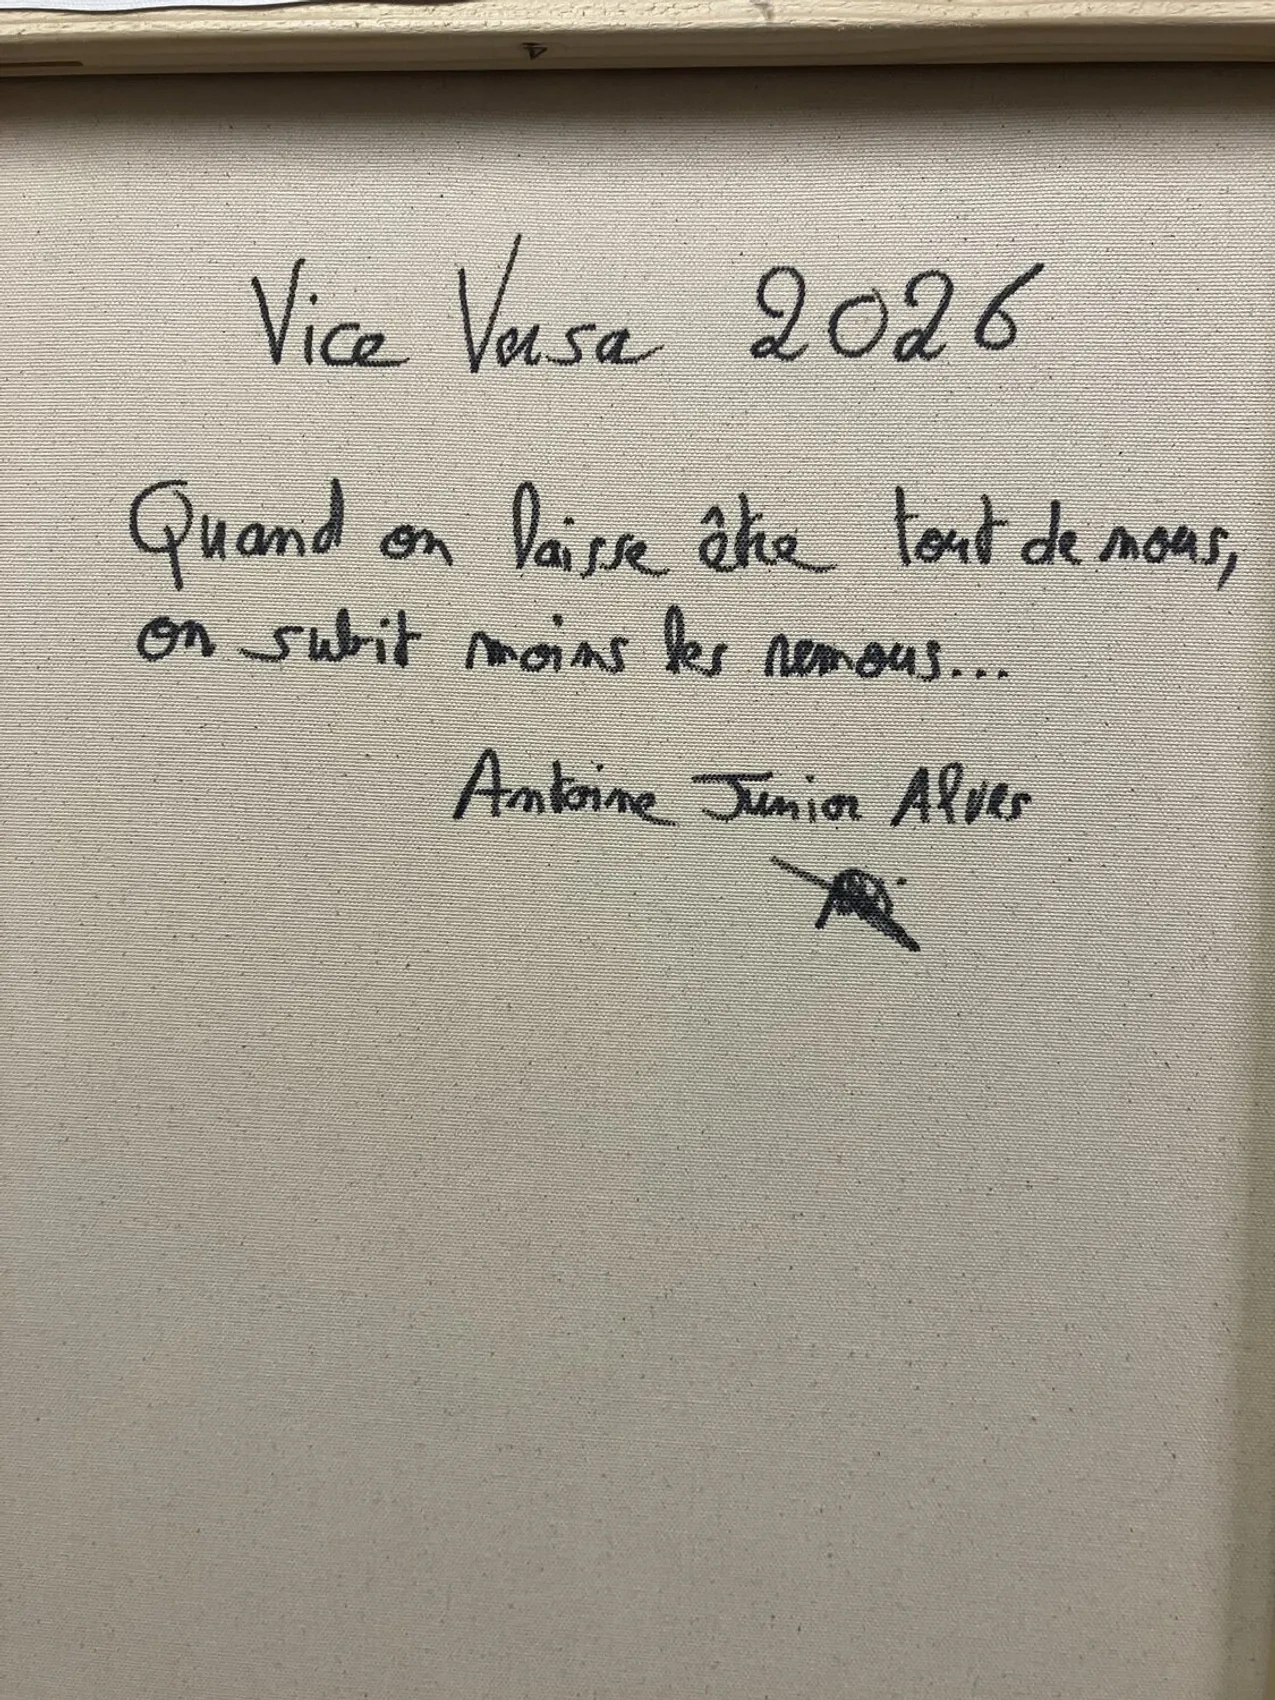 Vice Versa 2026
Quand on laisse être tout de nous,
on subit moins les remous...
Antoine Junior Alves